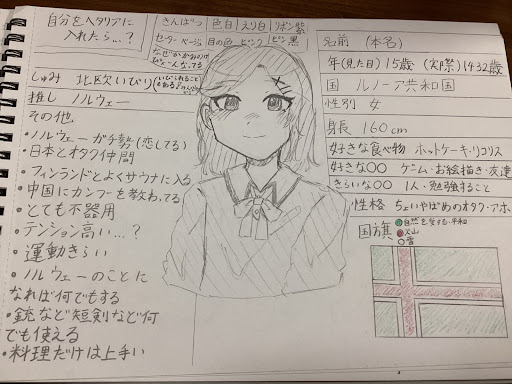 自分をヘタリアに
入れたら…?
さんぱつ
色白
えり白
リボン紫
セーラーベージュ
目の色 ピンク
ピン黒
しゅみ 北欧いびり
推し ノルウェー
その他
・ノルウェーガチ勢(恋してる)
・日本とオタク仲間
・フィンランドとよくサウナに入る
・中国にカンフーを教わってる
・とても不器用
・テンション高い…?
・運動きらい
・ノルウェーのことに
なれば何でもする
・銃など短剣など何
でも使える
・料理だけは上手い
名前 (本名)
年(見た目)15歳 (実際)1432歳
国 ルノーア共和国
性別 女
身長 160cm
好きな食べ物 ホットケーキ・リコリス
好きな〇〇 ゲーム・お絵描き・友達
きらいな〇〇 1人・勉強すること
性格 ちょいやばめのオタク・アホ
国旗
自然を愛する・平和
火山
雪